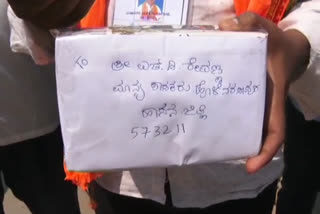 ಗೆ
ಶ್ರೀ ಎಚ್ ಡಿ ರೇವಣ್ಣ
ಮಾನ್ಯ ಶಾಸಕರು ಹೊಳೆನರಸೀಪುರ
ಹಾಸನ ಜಿಲ್ಲೆ
573211